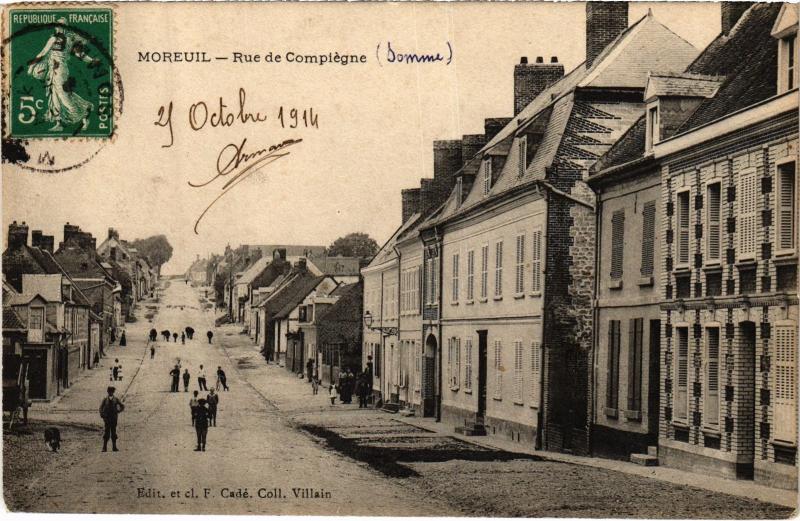 REPUBLIQUE FRANÇAISE
5c
POSTES
MOREUIL — Rue de Compiègne (Somme)
25 Octobre 1914
Edit. et cl. F. Cadé. Coll. Villain